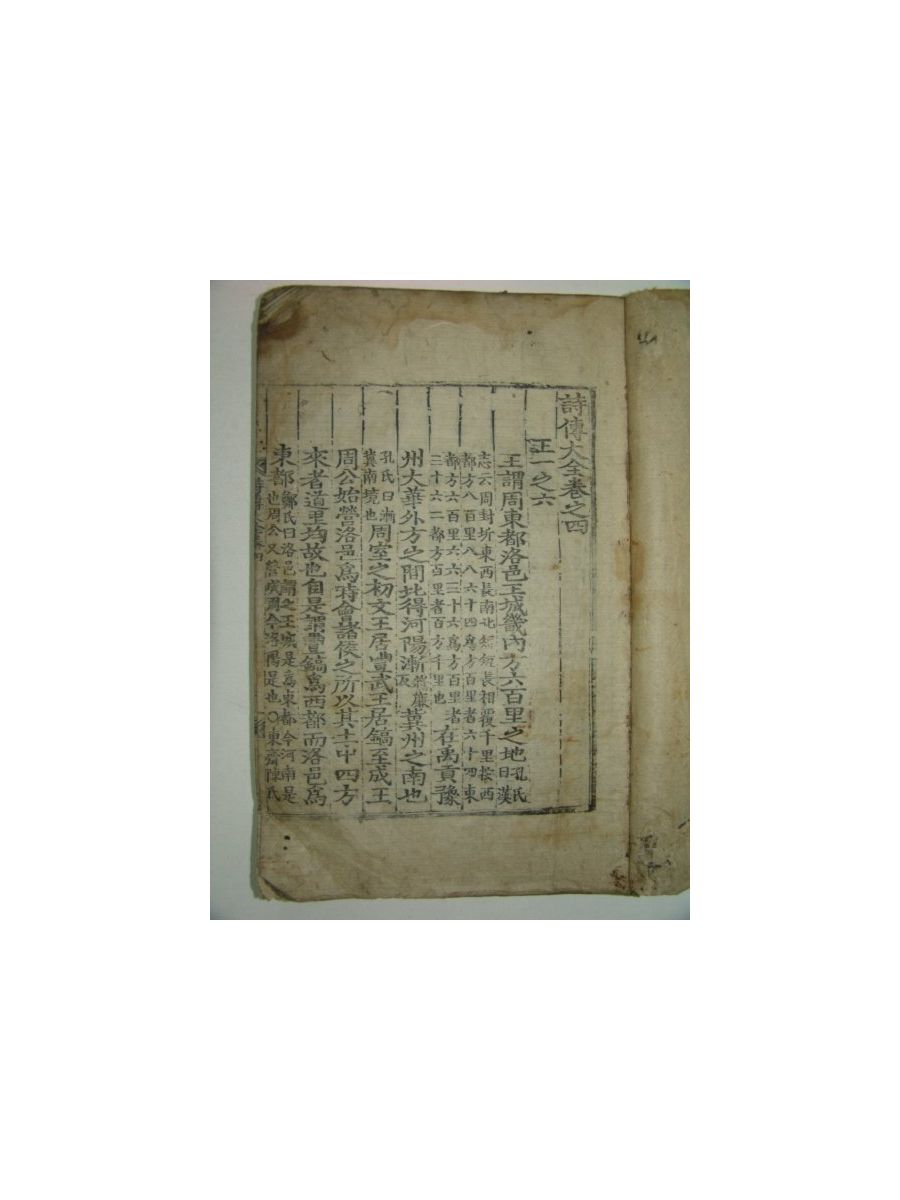 詩傳大全卷之四
王一之六
王謂周東都洛邑王城畿內方六百里之地孔氏曰漢
志云周封圻東西長南北短短長相覆千里按西
都方八百里八八六十四爲方百里者六十四東
都方六百里六六三十六爲方百里者
三十六二都方百里者百方千里也在禹貢豫
州大華外方之間北得河陽漸冀州之南也
孔氏曰漸冀南境也周室之初文王居豐武王居鎬至成王
周公始營洛邑爲時會諸侯之所以其土中四方
來者道里均故也自是謂豐鎬爲西都而洛邑爲
東都鄭氏曰洛邑謂之王城是爲東都今河南是
也周公又營成周今洛陽是也○東齋陳氏